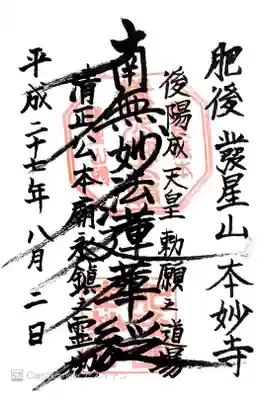 肥後 發星山 本妙寺
後陽成天皇勅願之道場
南無妙法蓮華経
清正公本廟永鎮之霊
平成二十七年八月二日